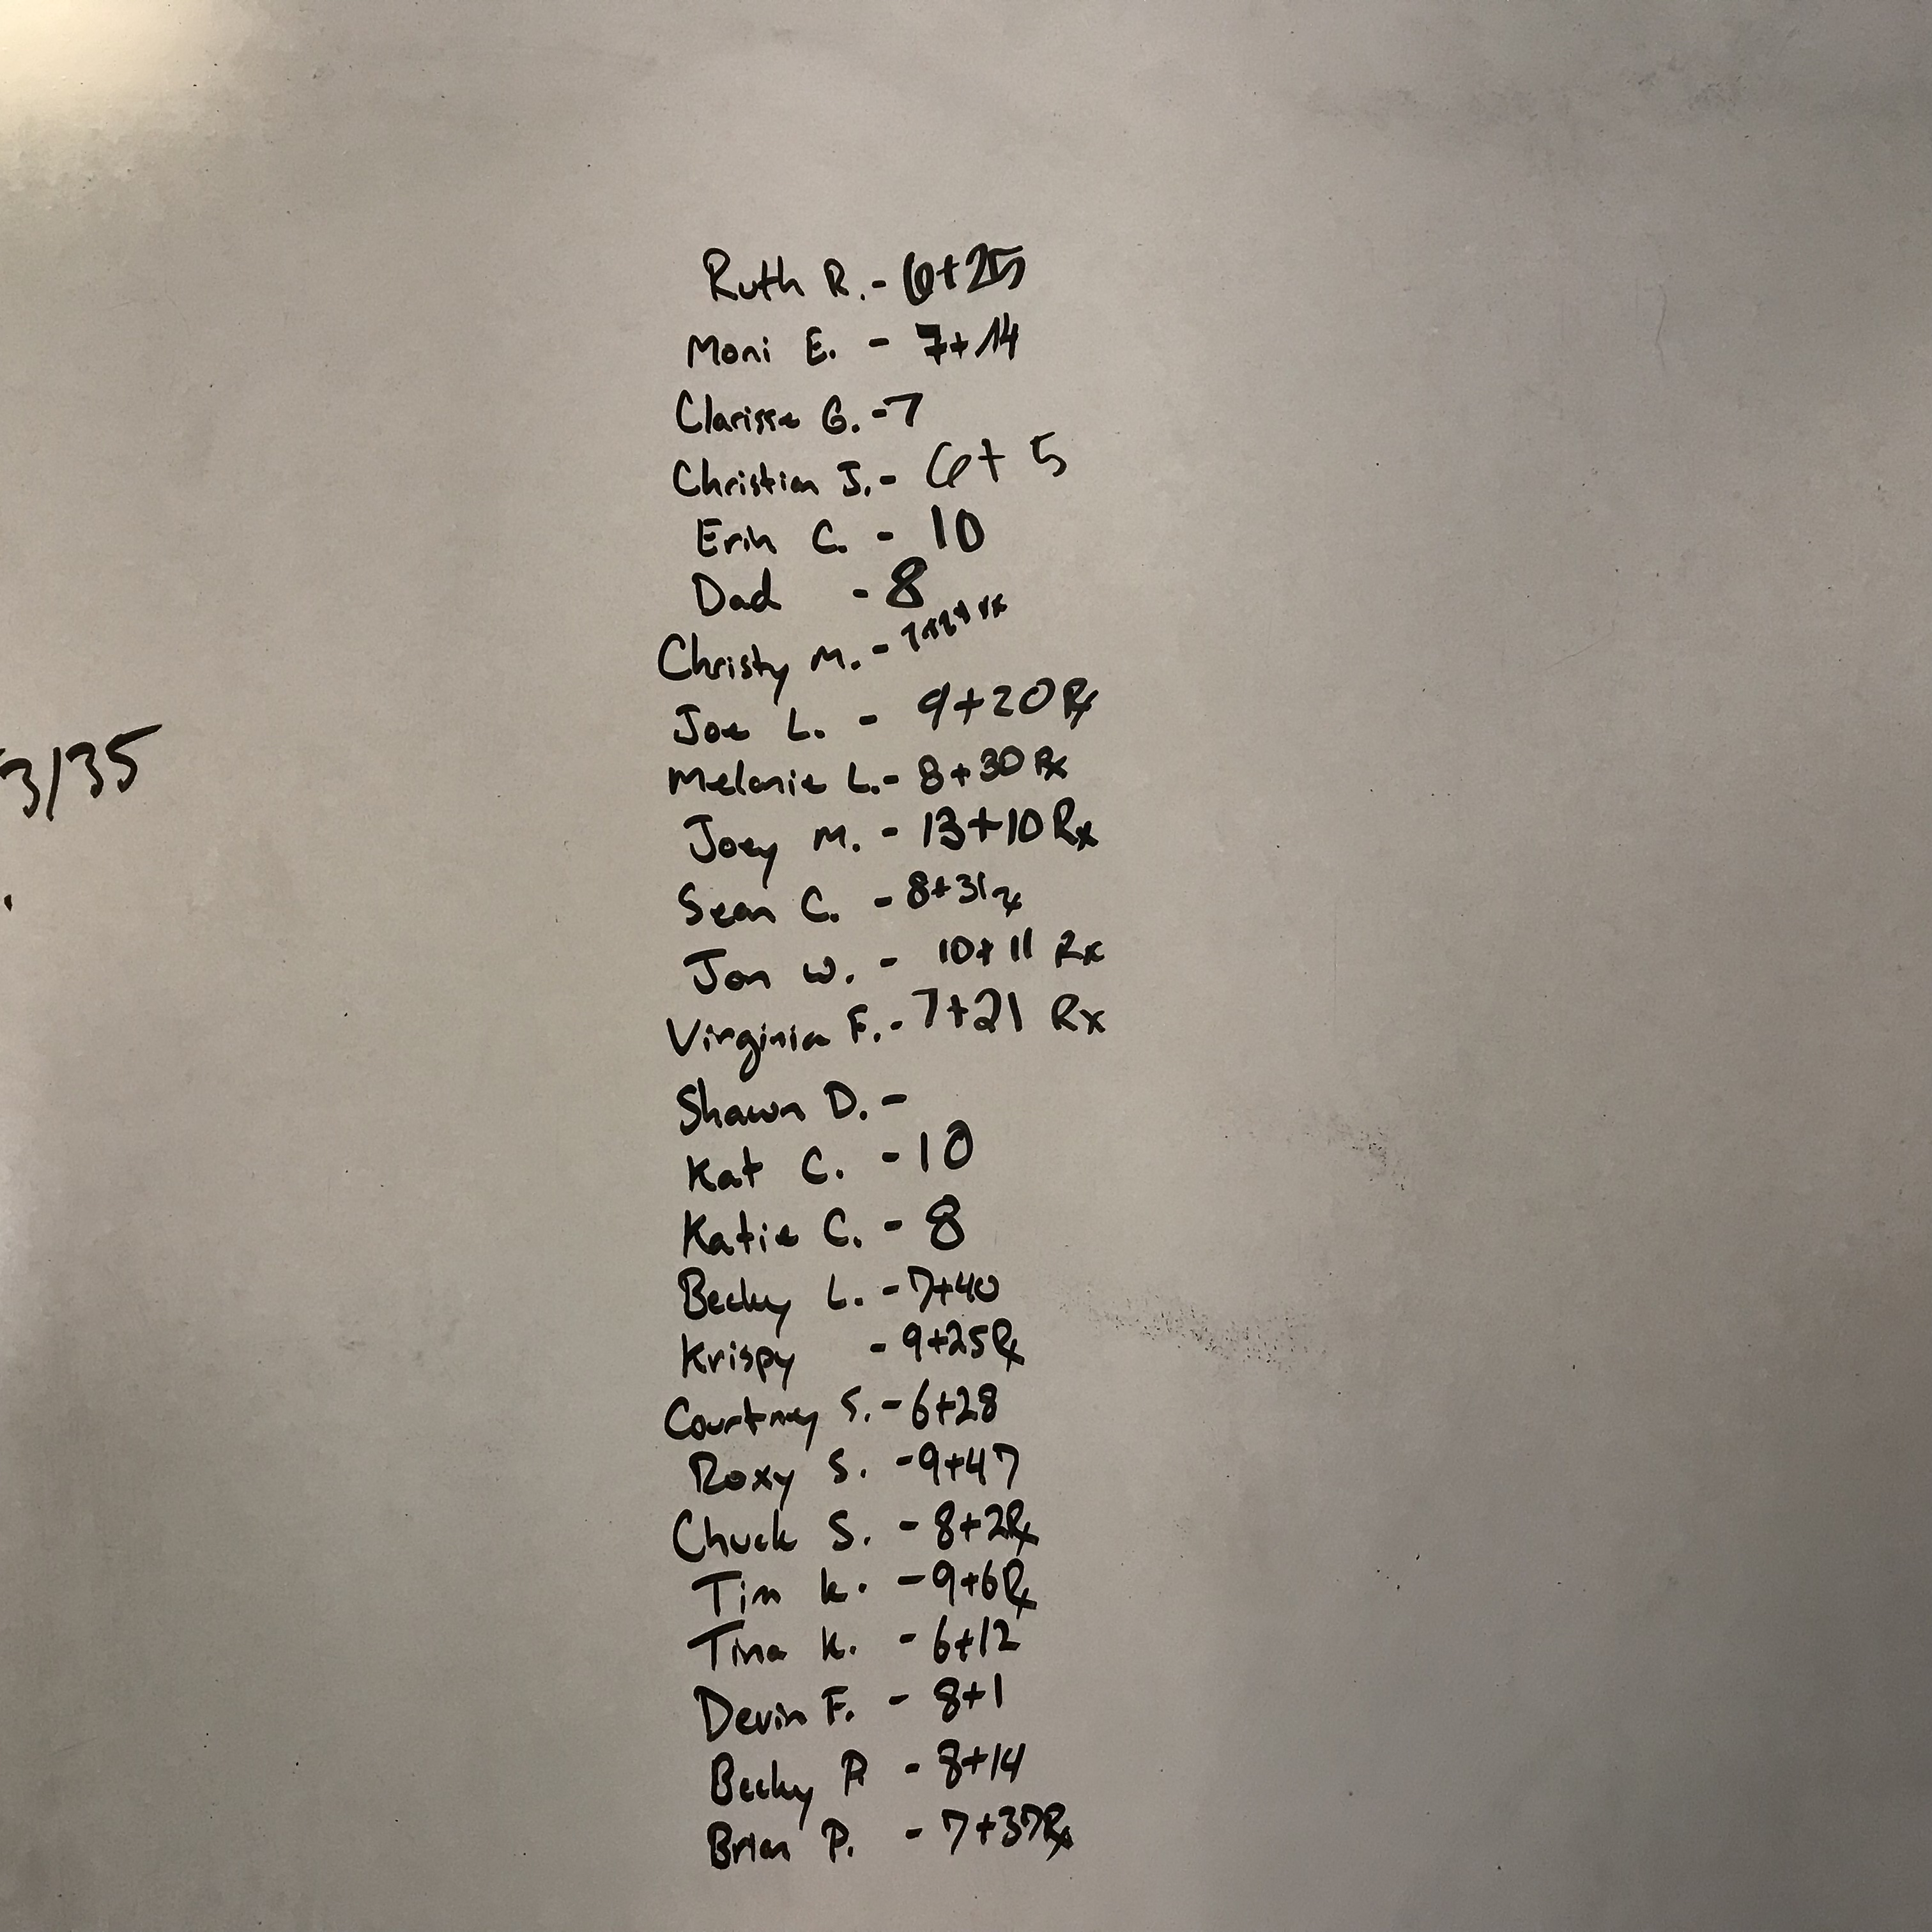 Ruth R. - 6+25
Moni E. - 7+14
Clarisse G. - 7
Christian J. - 6+5
Erin C. - 10
Dad - 8
Christy M. -
3/35
Joe L. - 9+20 Rx
Melanie L. - 8+30 Rx
Joey M. - 13+10 Rx
Sean C. - 8+31 rx
Jon W. - 10+11 Rx
Virginia F. - 7+21 Rx
Shawn D. -
Kat C. - 10
Katie C. - 8
Becky L. - 7+40
Krispy - 9+25 Rx
Courtney S. - 6+28
Roxy S. - 9+47
Chuck S. - 8+2 Rx
Tim K. - 9+6 Rx
Tina K. - 6+12
Devin F. - 8+1
Becky P. - 8+14
Brian P. - 7+37 Rx